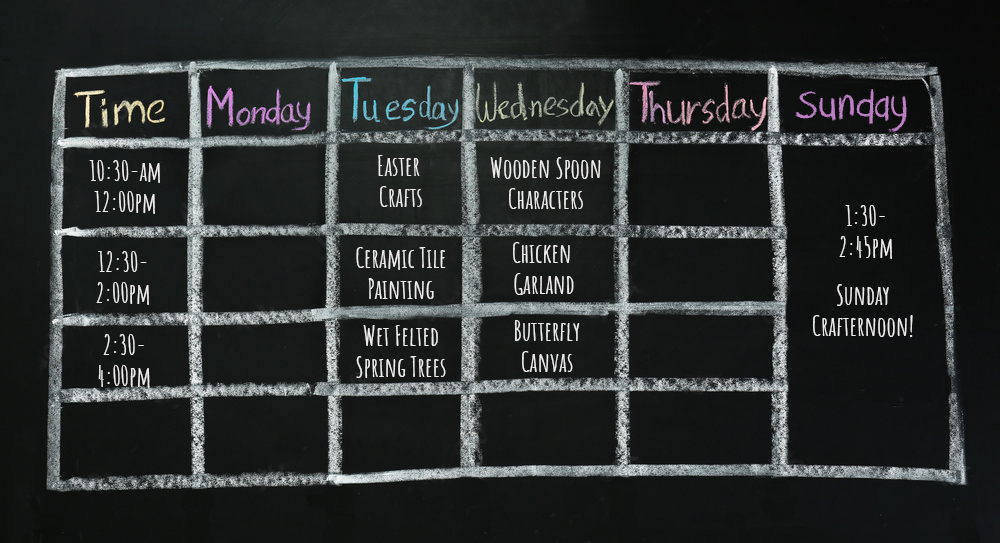 Time Monday Tuesday Wednesday Thursday Sunday
10:30-AM
12:00PM
EASTER
CRAFTS
WOODEN SPOON
CHARACTERS
12:30-
2:00PM
CERAMIC TILE
PAINTING
CHICKEN
GARLAND
2:30-
4:00PM
WET FELTED
SPRING TREES
BUTTERFLY
CANVAS
1:30-
2:45PM
SUNDAY
CRAFTERNOON!